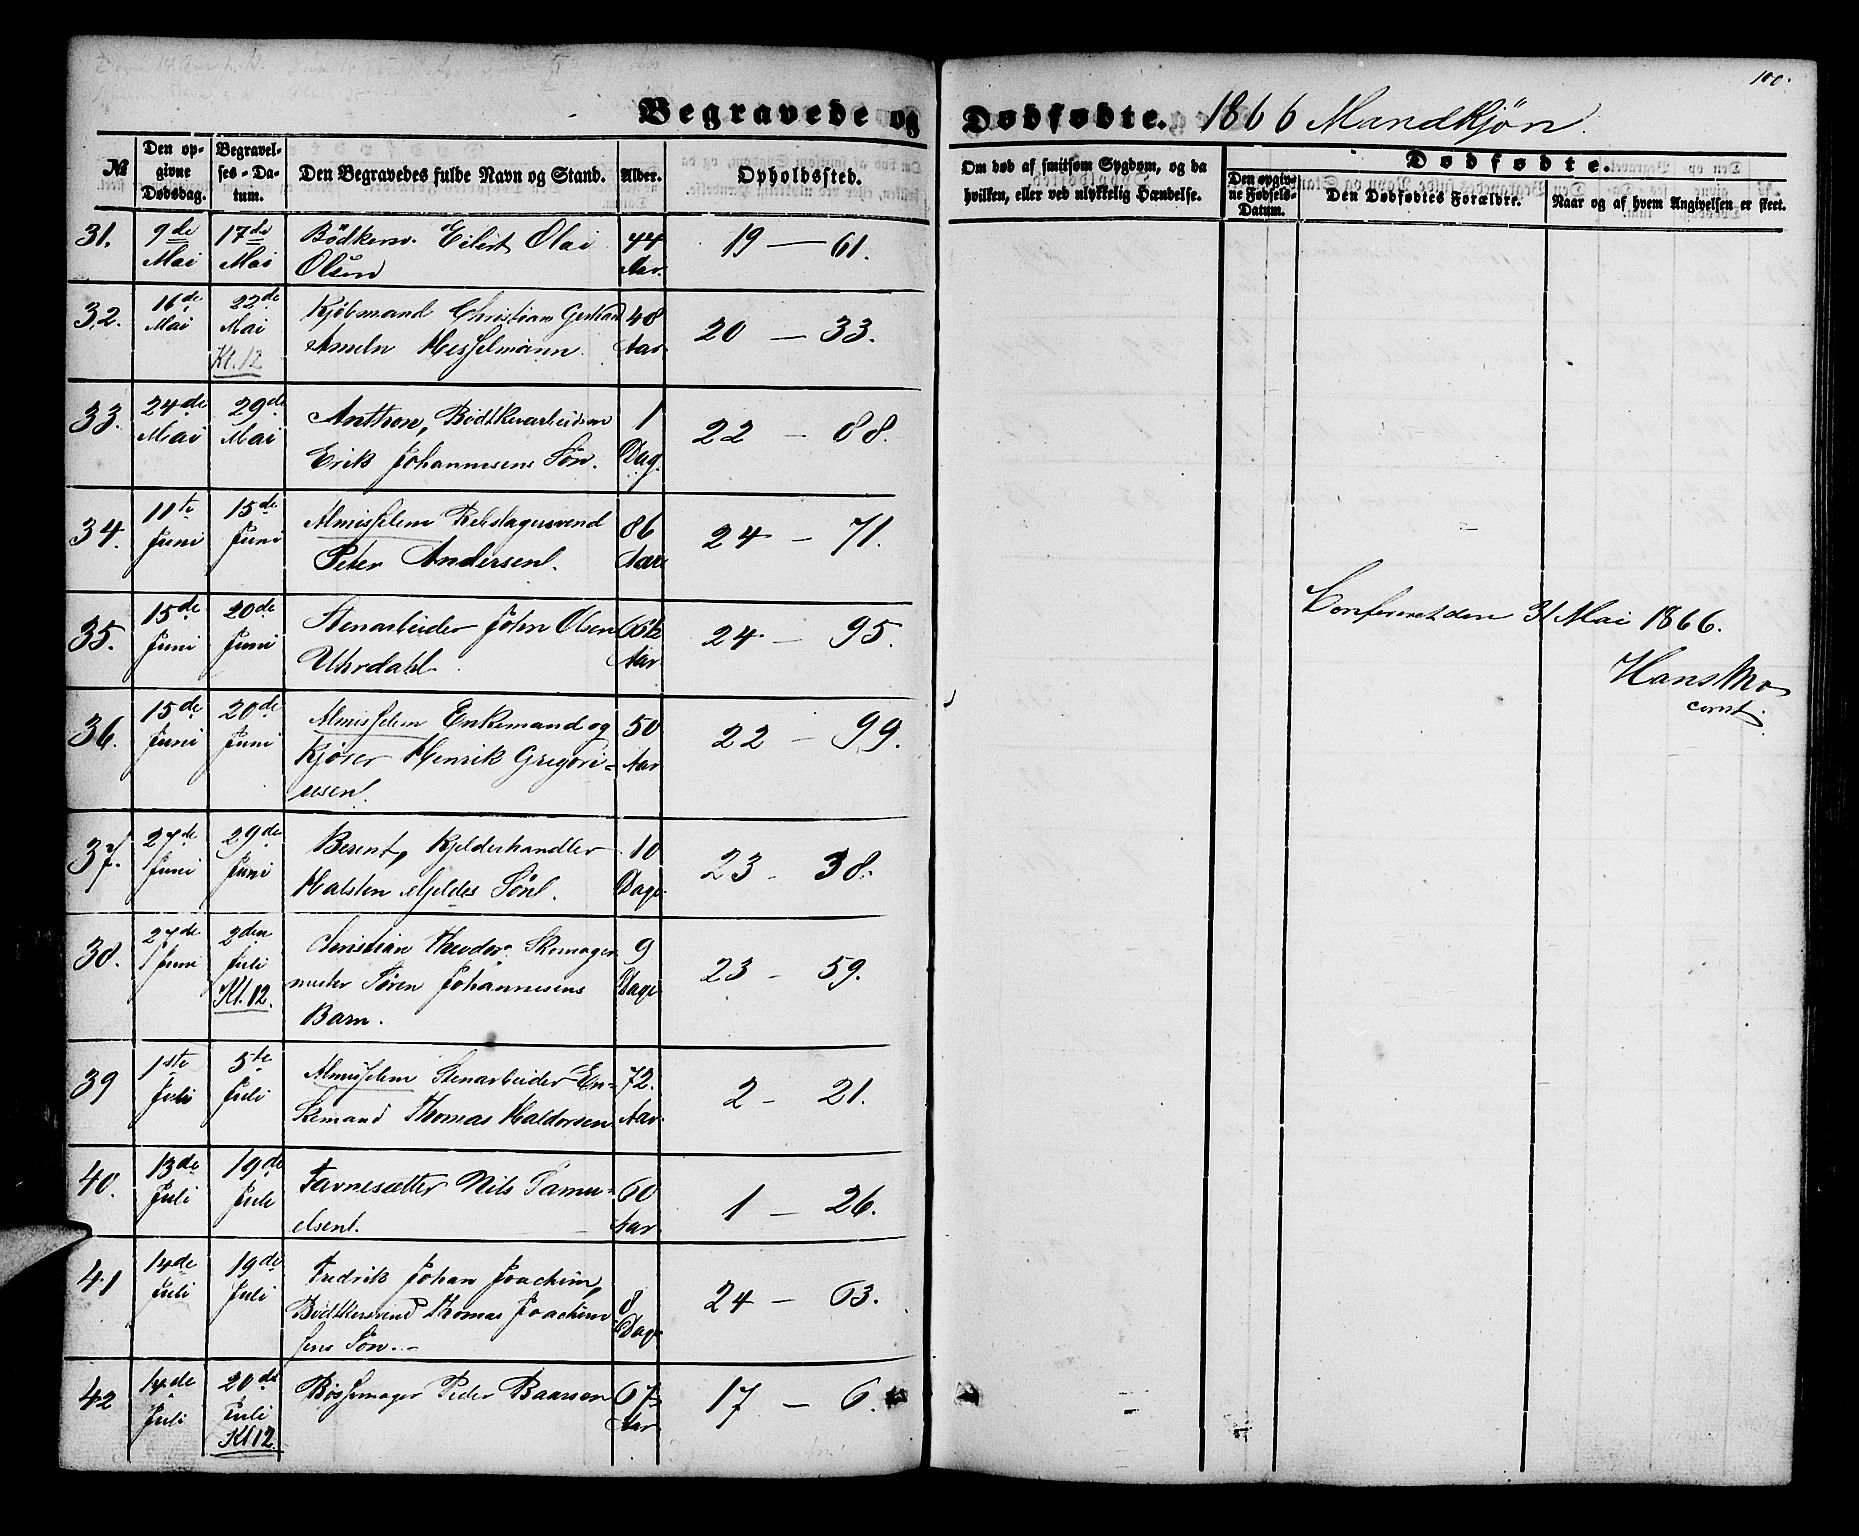 100.
Begravede og Dødfødte. 1866 Mandkjøn.
№
Den opgivne Dødsdag.
Begravelses-Datum.
Den Begravedes fulde Navn og Stand.
Alder.
Opholdssted.
Om død af smitsom Sygdom, og da hvilken, eller ved ulykkelig Hændelse.
Dødfødte.
Den opgivne Fødsels-Datum.
Den Dødfødtes Forældre.
Naar og af hvem Angivelsen er skeet.
31. 9de Mai 17de Mai Bødkersv. Eilert Olai 44 19 — 61.
Olsen Aar.
32. 16de Mai 22de Mai Kjøbmand Christian Gerhard 48 20 — 33.
Kl. 12 Ameln Hesselmann. Aar.
33. 24de Mai 29de Mai Anthon, Bødtkerarbeider 1 22 — 88.
Erik Johannesens Søn. Dag.
34. 11te Juni 15de Juni Almisselem Rebslagersvend 86 24 — 71.
Peter Andersen. Aar.
35. 15de Juni 20de Juni Stenarbeider John Olsen 24 — 95.
Uhrdahl. Aar
36. 15de Juni 20de Juni Almisselem Enkemand og 50 22 — 99.
Kjører Henrik Gregori= Aar
usen.
37. 27de Juni 29de Juni Berent, Kjelderhandler 10 23 - 38.
Halsten Mjeldes Søn. Dage
38. 27de Juni 2den Juli Christian Theodor, Skomager 9 23 - 59.
Kl. 12. mester Søren Johannesens Dage
Barn.
39 1ste Juli 5te Juli Almisselem Stenarbeider En- 72. 2 - 21.
kemand Thomas Haldorsen Aar.
40. 13de Juli 19de Juli Favnesætter Nils Samu- 60 1 — 26.
elsen. Aar.
41 14de Juli 19de Juli Fredrik Johan Joachim, 8 24 — 63.
Bødtkersvend Thomas Joachim Dage
sens Søn.
42 14de Juli 20de Juli Bøssemager Peder Baarsen 67 17 — 6.
Kl 12 Aar
Confereret den 31 Mai 1866.
Hans Mo
const.